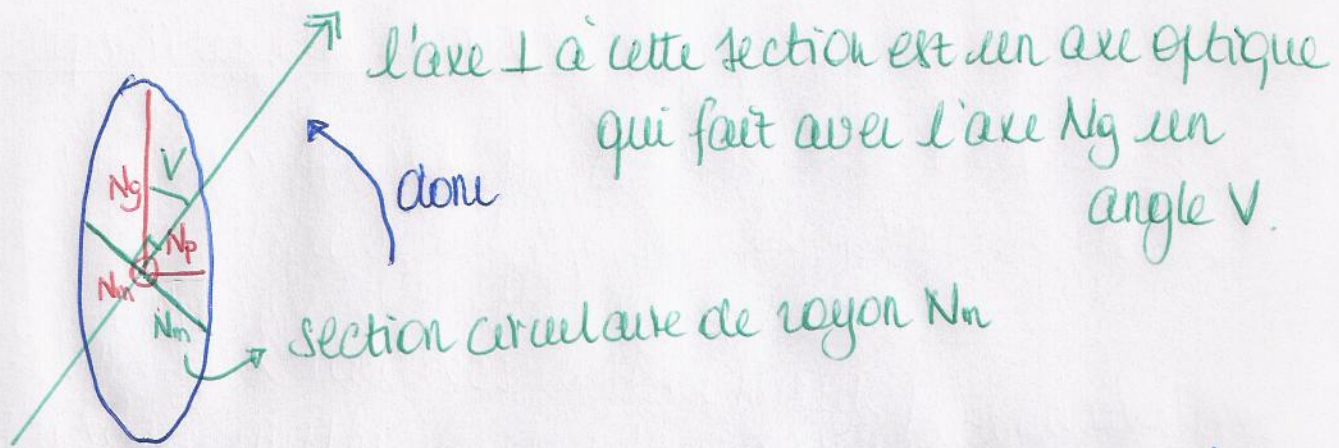 l'axe ⊥ à cette section est un axe optique
qui fait avec l'axe Ng un
angle V.
donc
Ng
V
Np
Nm
Nm
section circulaire de rayon Nm